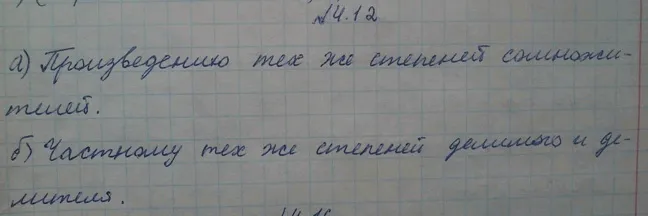 №14.12
а) Произведению тех же степеней сомножи-
телей.
б) Частному тех же степеней делимого и де-
лителя.